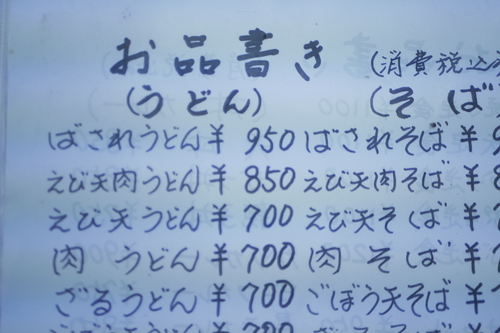 お品書き (消費税込み
(うどん) (そば
ばされうどん ¥950 ばされそば ¥9
えび天肉うどん ¥850 えび天肉そば ¥8
えび天うどん ¥700 えび天そば ¥
肉 うどん ¥700 肉 そば ¥
ざるうどん ¥700 ごぼう天そば ¥